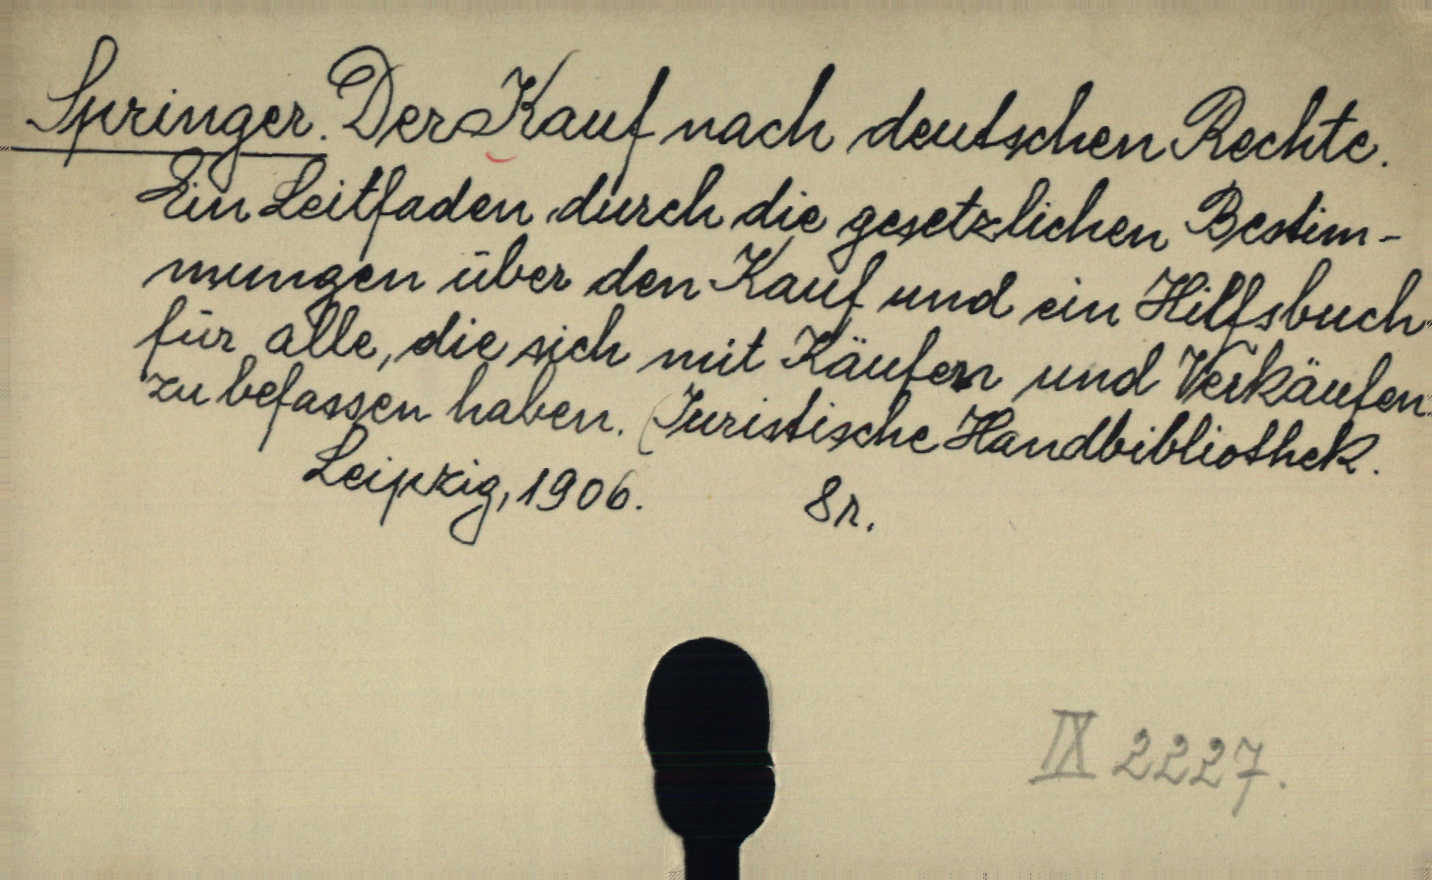 Springer. Der Kauf nach deutschen Rechte.
Ein Leitfaden durch die gesetzlichen Bestim-
mungen über den Kauf und ein Hilfsbuch
für alle, die sich mit Käufern und Verkäufen
zu befassen haben. (Juristische Handbibliothek.
Leipzig, 1906. 8r.
IX 2227.